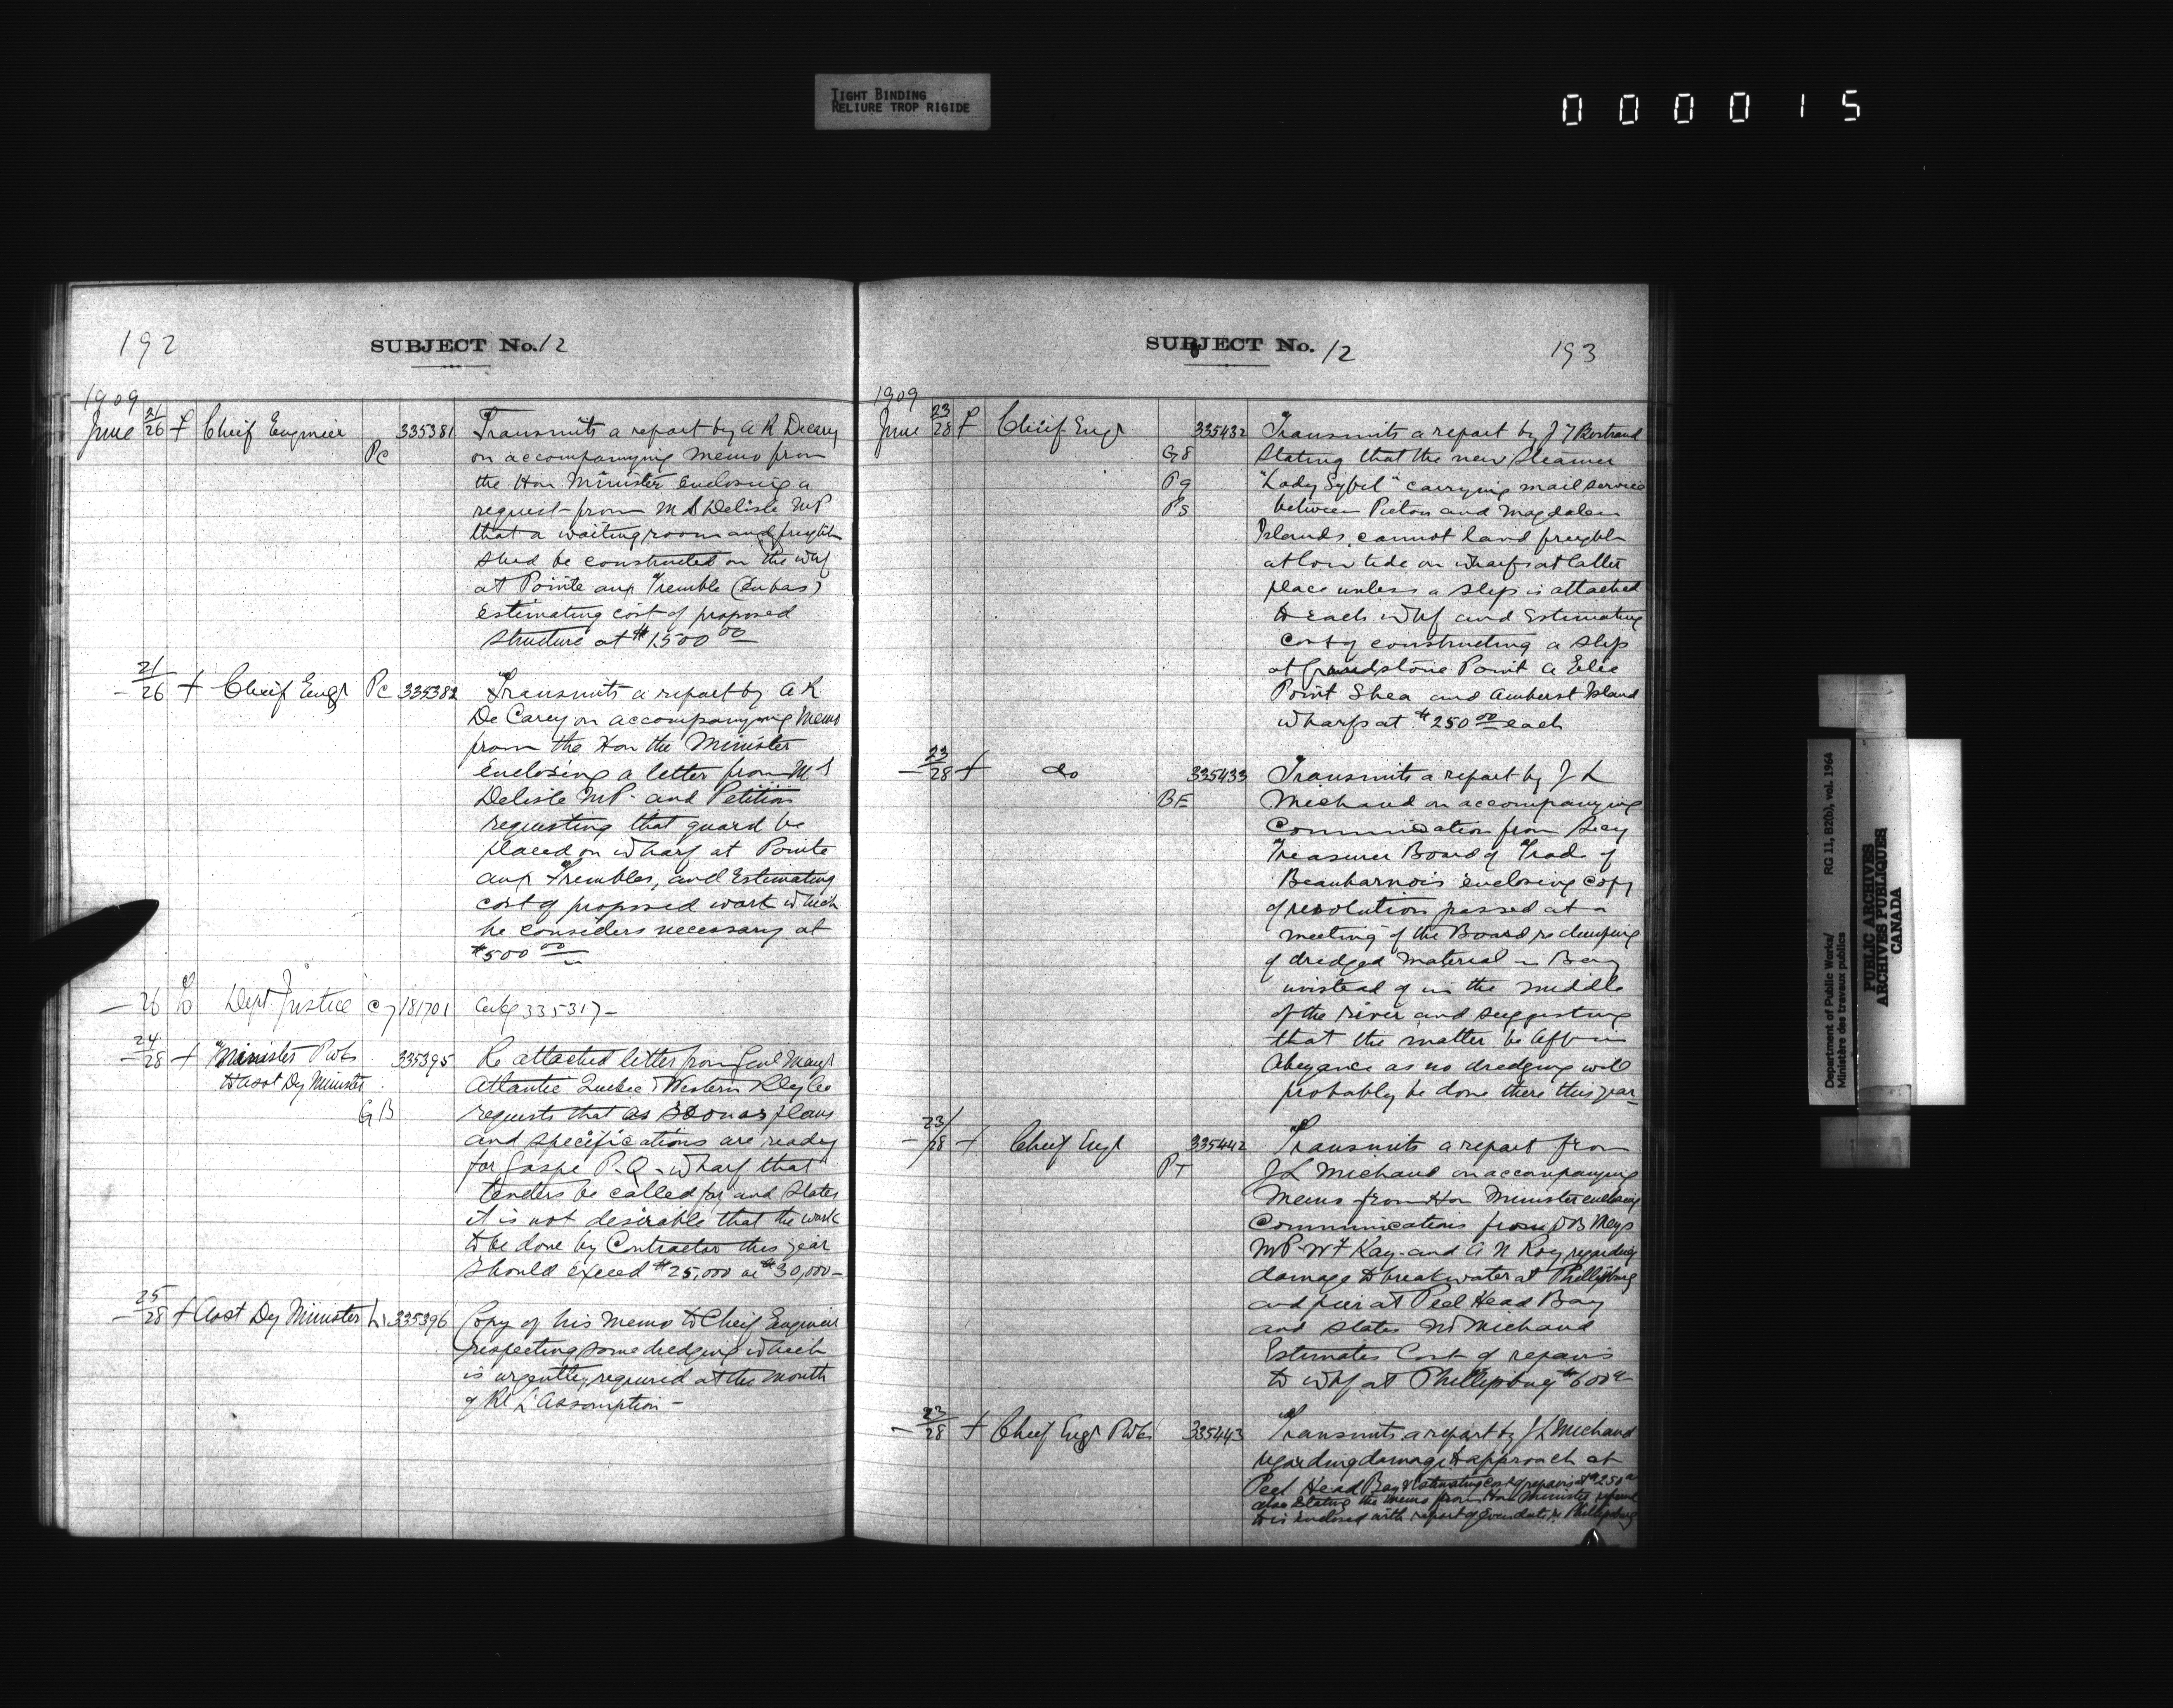 TIGHT BINDING
RELIURE TROP RIGIDE
000015
192
SUBJECT No. 12
1909
June 21/26 f Cheif Engineer 335381 Transmits a report by A R Decary
Pc on accompanying memo from
the Hon Minister enclosing a
request from M S Delisle MP
that a waiting room and freight
shed be constructed on the whf
at Pointe aux Tremble (en bas)
estimating cost of proposed
structure at $1500 00
- 21/26 f Cheif Engr Pc 335382 Transmits a report by A R
De Carey on accompanying Memo
from the Hon the Minister
enclosing a letter from M S
Delisle MP. and Petition
requesting that guard be
placed on wharf at Pointe
aux Trembles, and Estimating
cost of proposed work which
he considers necessary at
$500 00
- 26 Dept Justice 181701 335317-
- 24/28 f Minister Pwks 335395 Re attached letter from Genl Mangr
to Asst Dy Minister Atlantic Quebec & Western Rley Co
GB requests that as soon as plans
and specifications are ready
for Gaspe P.Q. wharf that
tenders be called for and states
it is not desirable that the work
to be done by Contractor this year
should exceed $25,000 or $30,000-
- 25/28 f Asst Dy Minister 335396 Copy of his memo to Cheif Engineer
respecting some dredging which
is urgently required at the mouth
of RL L'Assomption -
SUBJECT No. 12
193
1909
June 23/28 f Cheif Engr 335432 Transmits a report by J T Bertrand
G8 stating that the new steamer
Pg "Lady Sybil" carrying mail service
Ps between Pictou and Magdalen
Islands, cannot land freight
at low tide on wharfs at latter
place unless a slip is attached
to each whf and Estimating
cost of constructing a slip
at Grindstone Point a Elie
Point Shea and Amherst Island
wharfs at $250 00 each
- 23/28 f do 335433 Transmits a report by J L
BE Michaud on accompanying
Communication from Secy
Treasurer Board of Trade of
Beauharnois enclosing copy
of resolution passed at a
meeting of the Board re dumping
of dredged material in Bay
instead of in the middle
of the river and suggesting
that the matter be left in
Abeyance as no dredging will
probably be done there this year-
- 23/28 f Cheif Engr 335442 Transmits a report from
PT J L Michaud on accompanying
Memo from Hon Minister enclosing
Communications from D B Meigs
MP. W F Kay. and A N Roy regarding
damage to breakwater at Phillipsburg
and pier at Peel Head Bay
and states Mr Michaud
Estimates Cost of repairs
to whf at Phillipsburg $600
- 23/28 f Cheif Engr Pwks 335443 Transmits a report by J L Michaud
regarding damage to approach at
Peel Head Bay & Estimating cost of repairs at $250
also stating the memo from Hon Minister referred
to is enclosed with report of even date re Phillipsburg
Department of Public Works/ RG 11, B2(b), vol. 1964
Ministère des travaux publics
PUBLIC ARCHIVES
ARCHIVES PUBLIQUES
CANADA